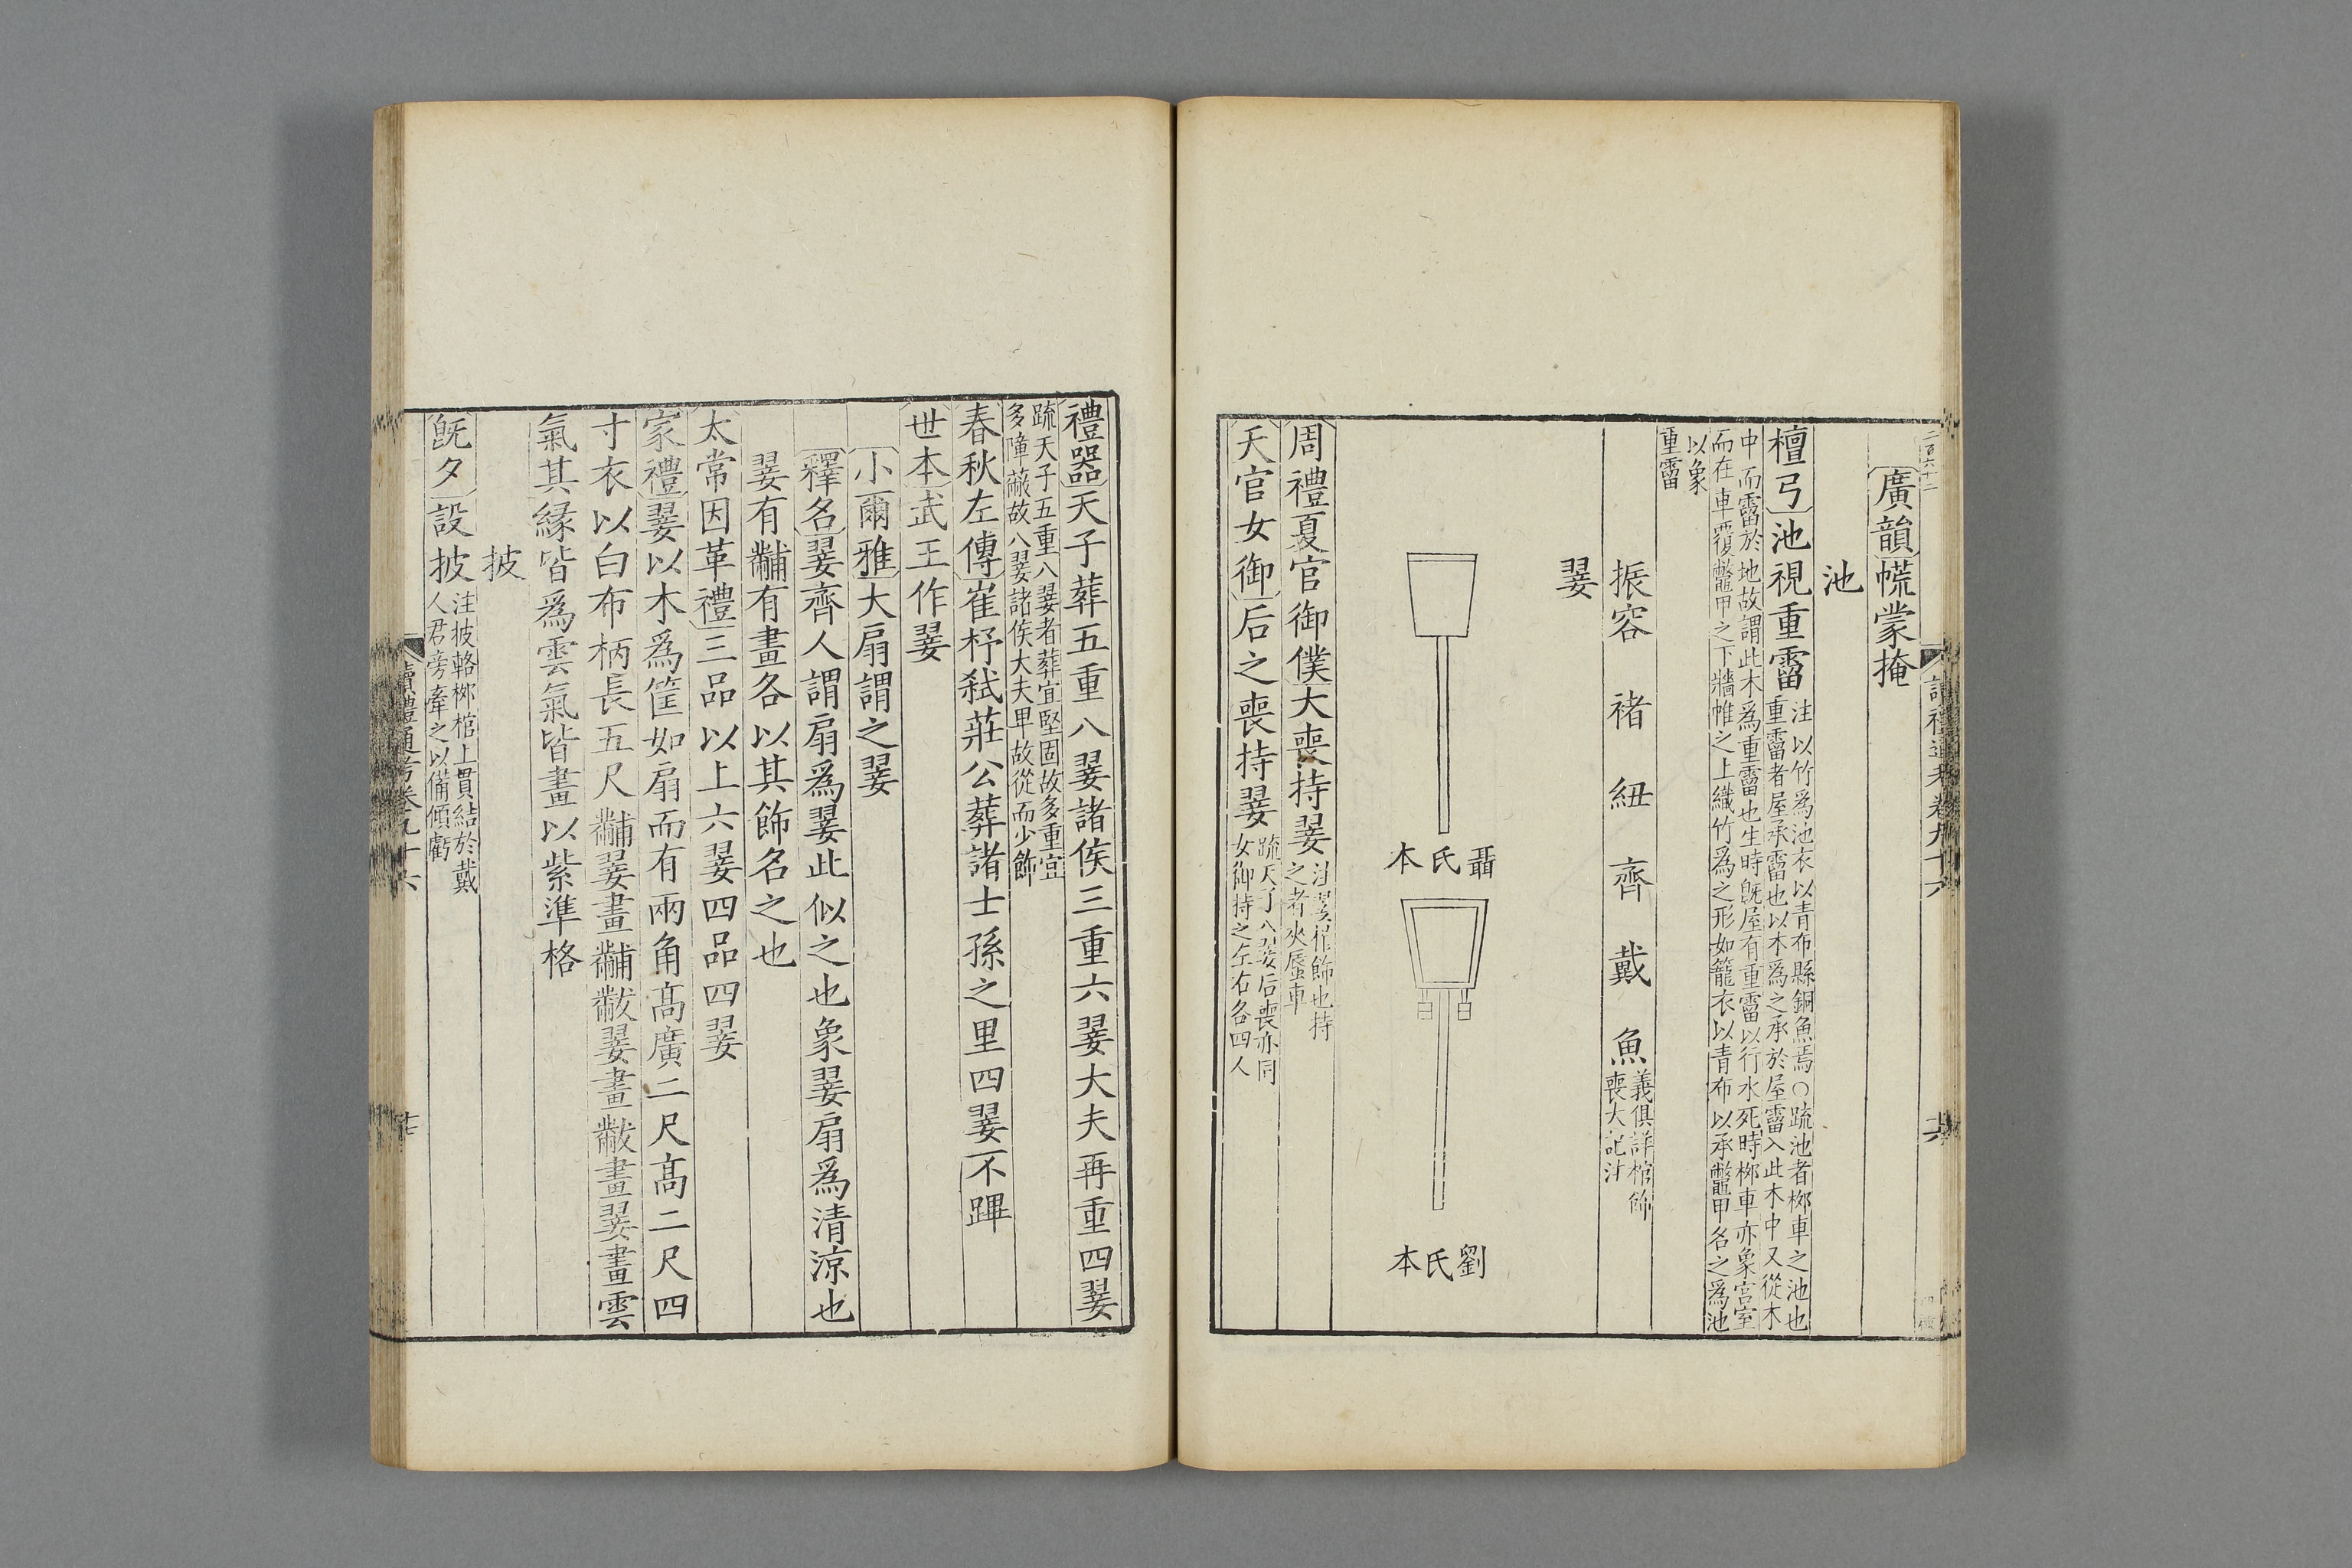 二百六十二
讀禮通考卷九十六
廣韻㡆蒙掩
池
檀弓池視重霤
注以竹爲池衣以青布縣銅魚焉○疏池者柳車之池也
重霤者屋承霤也以木爲之承於屋霤入此木中又從木
中而霤於地故謂此木爲重霤也生時旣屋有重霤以行水死時柳車亦象宮室
而在車覆鼈甲之下牆帷之上織竹爲之形如籠衣以青布以承鼈甲名之爲池
以象
重霤
振容 褚 紐 齊 戴 魚
義俱詳棺飾
喪大記注
翣
聶氏本
劉氏本
周禮夏官御僕大喪持翣
注翣棺飾也持
之者夾蜃車
天官女御后之喪持翣
疏天子八翣后喪亦同
女御持之左右各四人
禮器天子葬五重八翣諸侯三重六翣大夫再重四翣
疏天子五重八翣者葬宜堅固故多重宜
多障蔽故八翣諸侯大夫卑故從而少飾
春秋左傳崔杼弒莊公葬諸士孫之里四翣不蹕
世本武王作翣
小爾雅大扇謂之翣
釋名翣齊人謂扇爲翣此似之也象翣扇爲清涼也
翣有黼有畫各以其飾名之也
太常因革禮三品以上六翣四品四翣
家禮翣以木爲筐如扇而有兩角高廣二尺高二尺四
寸衣以白布柄長五尺黼翣畫黼黻翣畫黻畫翣畫雲
氣其緣皆爲雲氣皆畫以紫準格
披
旣夕設披
注披輅柳棺上貫結於戴
人君旁牽之以備傾虧
讀禮通考卷九十六